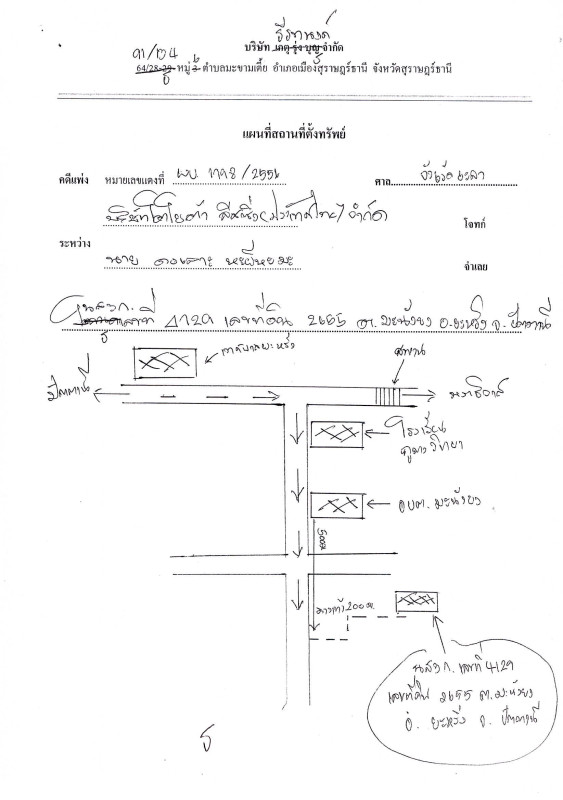 ธีรพนธ์
91/124
บริษัท เกตุ รุ่ง บุญ จำกัด
64/28-29 หมู่ 3 6 ตำบลมะขามเตี้ย อำเภอเมืองสุราษฎร์ธานี จังหวัดสุราษฎร์ธานี
แผนที่สถานที่ตั้งทรัพย์
คดีแพ่ง หมายเลขแดงที่ ผบ. 1778/2556 ศาล จังหวัดยะลา
บริษัทโตโยต้า ลีสซิ่ง(ประเทศไทย) จำกัด โจทก์
ระหว่าง
นาย จำเลย
นส3ก. เลขที่ 4129 เลขที่ดิน 2655 ต.มะนังยง อ.ยะหริ่ง จ.ปัตตานี
เทศบาลยะหริ่ง
สะพาน
ปัตตานี
นราธิวาส
โรงเรียน
วิทยา
อบต. มะนังยง
500ม
200 ม.
นส3ก. เลขที่ 4129
เลขที่ดิน 2655 ต.มะนังยง
อ. ยะหริ่ง จ. ปัตตานี